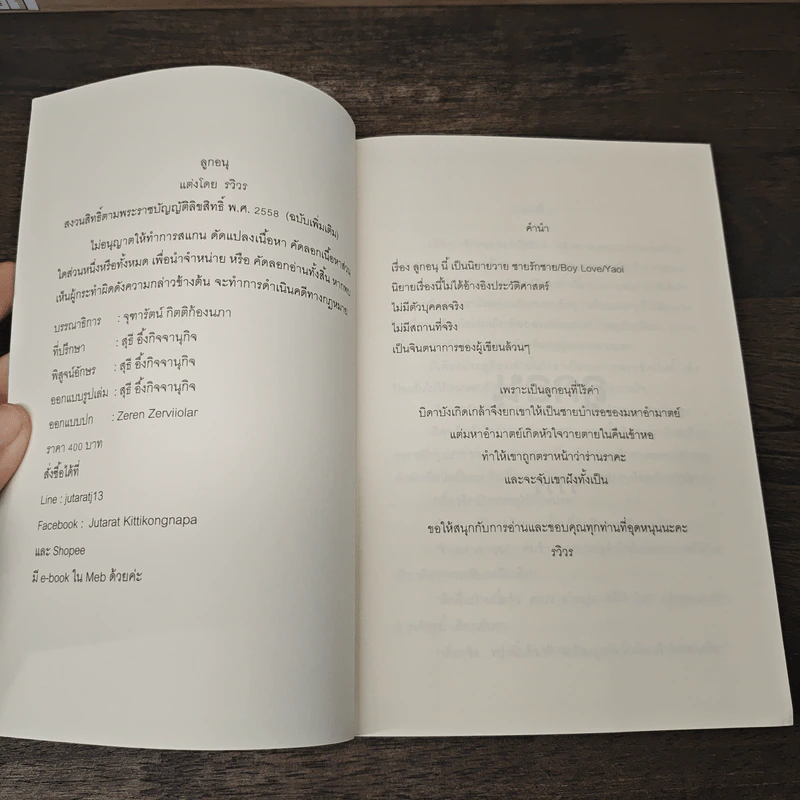 ลูกอนุ
แต่งโดย รวิวร
สงวนสิทธิ์ตามพระราชบัญญัติลิขสิทธิ์ พ.ศ. 2558 (ฉบับเพิ่มเติม)
ไม่อนุญาตให้ทำการสแกน ดัดแปลงเนื้อหา คัดลอกเนื้อหาส่วน
ใดส่วนหนึ่งหรือทั้งหมด เพื่อนำจำหน่าย หรือ คัดลอกอ่านทั้งสิ้น หากพบ
เห็นผู้กระทำผิดดังความกล่าวข้างต้น จะทำการดำเนินคดีทางกฎหมาย
บรรณาธิการ : จุฑารัตน์ กิตติก้องนภา
ที่ปรึกษา : สุธี อึ้งกิจจานุกิจ
พิสูจน์อักษร : สุธี อึ้งกิจจานุกิจ
ออกแบบรูปเล่ม : สุธี อึ้งกิจจานุกิจ
ออกแบบปก : Zeren Zerviiolar
ราคา 400 บาท
สั่งซื้อได้ที่
Line : jutaratj13
Facebook : Jutarat Kittikongnapa
และ Shopee
มี e-book ใน Meb ด้วยค่ะ
คำนำ
เรื่อง ลูกอนุ นี้ เป็นนิยายวาย ชายรักชาย/Boy Love/Yaoi
นิยายเรื่องนี้ไม่ได้อ้างอิงประวัติศาสตร์
ไม่มีตัวบุคคลจริง
ไม่มีสถานที่จริง
เป็นจินตนาการของผู้เขียนล้วนๆ
เพราะเป็นลูกอนุที่ไร้ค่า
บิดาบังเกิดเกล้าจึงยกเขาให้เป็นชายบำเรอของมหาอำมาตย์
แต่มหาอำมาตย์เกิดหัวใจวายตายในคืนเข้าหอ
ทำให้เขาถูกตราหน้าว่าร่านราคะ
และจะจับเขาฝังทั้งเป็น
ขอให้สนุกกับการอ่านและขอบคุณทุกท่านที่อุดหนุนนะคะ
รวิวร